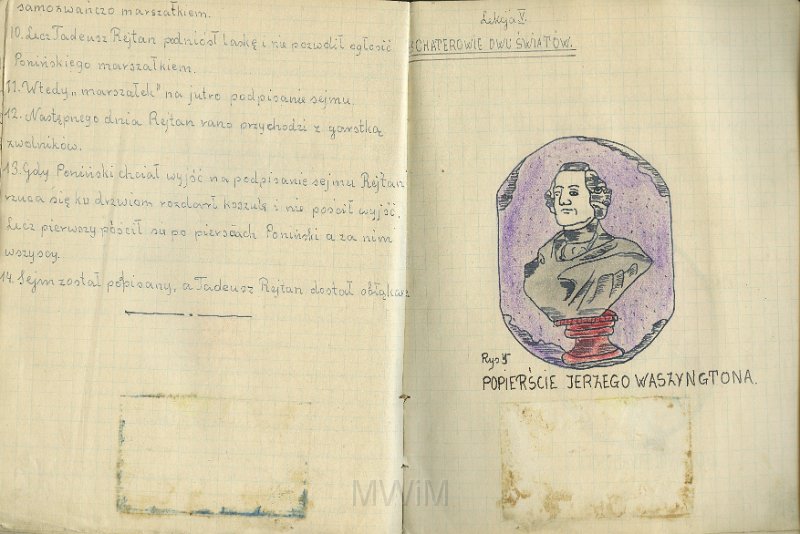 samozwańczo marszałkiem.
10. Lecz Tadeusz Rejtan podniósł laskę i nie pozwolił ogłosić
Ponińskiego marszałkiem.
11. Wtedy „marszałek" na jutro podpisanie sejmu.
12. Następnego dnia Rejtan rano przychodzi z garstką
zwolników.
13. Gdy Poniński chciał wyjść na podpisanie sejmu Rejtan
rzuca się ku drzwiom rozdarł koszulę i nie pościł wyjść.
Lecz pierwszy póścił się po piersiach Poniński a za nim
wszyscy.
14. Sejm został popisany, a Tadeusz Rejtan dostał obłąkan
Lekcja V.
CHATEROWIE DWU ŚWIATÓW.
Rys
POPIERŚCIE JERZEGO WASZYNGTONA.
MWiM